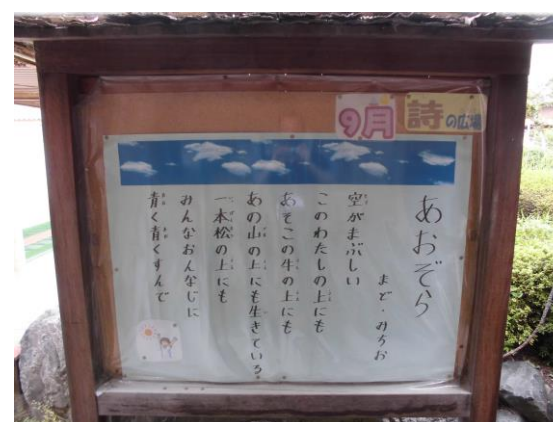 9月 詩の広場
あおぞら
まど・みちお
空がまぶしい
このわたしの上にも
あそこの牛の上にも
あの山の上にも生きている
一本松の上にも
みんなおんなじに
青く青くすんで